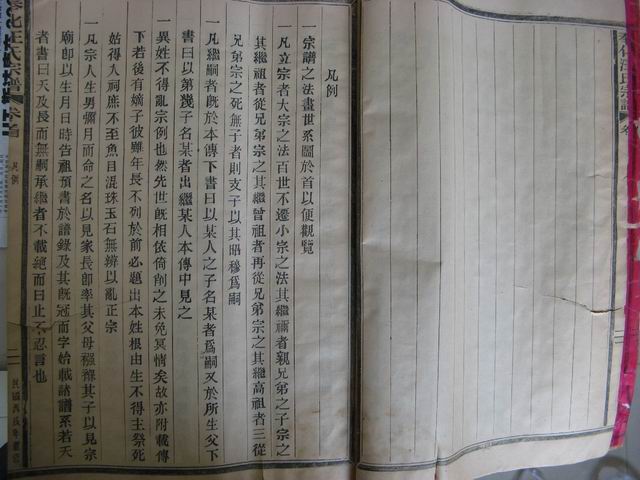 奉化汪氏宗譜
卷
凡例
一宗譜之法畫世系圖於首以便觀覽
一凡立宗者大宗之法百世不遷小宗之法其繼禰者親兄弟之子宗之
其繼祖者從兄弟宗之其繼曾祖者再從兄弟宗之其繼高祖者三從
兄弟宗之死無子者則支子以其昭穆爲嗣
一凡繼嗣者旣於本傳下書曰以某人之子名某者爲嗣又於所生父下
書曰以第幾子名某者出繼某人本傳中見之
一異姓不得亂宗例也然先世旣相依倚削之未免冥情矣故亦附載傳
下若後有嫡子彼雖年長不列於前必題出本姓根由生不得主祭死
姑得入祠庶不至魚目混珠玉石無辨以亂正宗
一凡宗人生男彌月而命之名以見家長卽率其父母襁褓其子以見宗
廟卽以生月日時告祖預書於譜錄及其旣冠而字始載諸譜系若天
者書曰天及長而無嗣承繼者不載絕而曰止不忍言也
汪氏宗譜
卷首
凡例